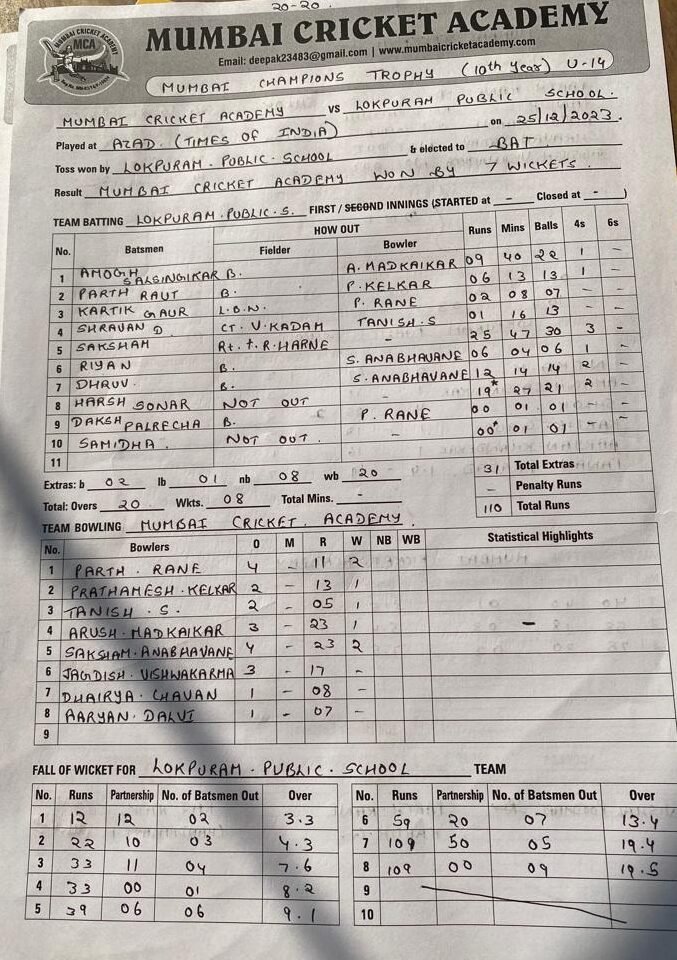 20-20.
MUMBAI CRICKET ACADEMY
MCA
MUMBAI CRICKET ACADEMY
Email: deepak23483@gmail.com | www.mumbaicricketacademy.com
MUMBAI CHAMPIONS TROPHY (10th Year) U-14
MUMBAI CRICKET ACADEMY VS LOKPURAM PUBLIC SCHOOL.
Played at AZAD. (TIMES OF INDIA) on 25/12/2023.
Toss won by LOKPURAM. PUBLIC. SCHOOL & elected to BAT
Result MUMBAI CRICKET ACADEMY WON BY 7 WICKETS.
TEAM BATTING LOKPURAM. PUBLIC. S. FIRST / SECOND INNINGS (STARTED at - Closed at - )
No. Batsmen HOW OUT Fielder Bowler Runs Mins Balls 4s 6s
1 AMOGH SALSINGIKAR B. A. MADKAIKAR 09 40 22 1 -
2 PARTH RAUT B. P. KELKAR 06 13 13 1 -
3 KARTIK GAUR L.B.W. P. RANE 02 08 07 - -
4 SHRAVAN D. CT. V. KADAM TANISH. S 01 16 13 - -
5 SAKSHAM Rt. t. R. HARNE - 25 47 30 3 -
6 RIYAN B. S. ANABHAVANE 06 04 06 1 -
7 DHRUV. B. S. ANABHAVANE 12 14 14 2 -
8 HARSH SONAR NOT OUT - 19* 27 21 2 -
9 DAKSH PALRECHA B. P. RANE 00 01 01 - -
10 SAMIDHA. NOT OUT. - 00* 01 01 - -
11
Extras: b 02 lb 01 nb 08 wb 20 31 Total Extras
- Penalty Runs
Total: Overs 20 Wkts. 08 Total Mins. - 110 Total Runs
TEAM BOWLING MUMBAI CRICKET. ACADEMY.
No. Bowlers O M R W NB WB Statistical Highlights
1 PARTH. RANE 4 - 11 2
2 PRATHAMESH. KELKAR 2 - 13 1
3 TANISH. S. 2 - 05 1
4 ARUSH. MADKAIKAR 3 - 23 1 -
5 SAKSHAM. ANABHAVANE 4 - 23 2
6 JAGDISH. VISHWAKARMA 3 - 17 -
7 DHAIRYA. CHAVAN 1 - 08 -
8 AARYAN. DALVI 1 - 07 -
9
FALL OF WICKET FOR LOKPURAM. PUBLIC. SCHOOL TEAM
No. Runs Partnership No. of Batsmen Out Over No. Runs Partnership No. of Batsmen Out Over
1 12 12 02 3.3 6 59 20 07 13.4
2 22 10 03 4.3 7 109 50 05 19.4
3 33 11 04 7.6 8 109 00 09 19.5
4 33 00 01 8.2 9
5 39 06 06 9.1 10